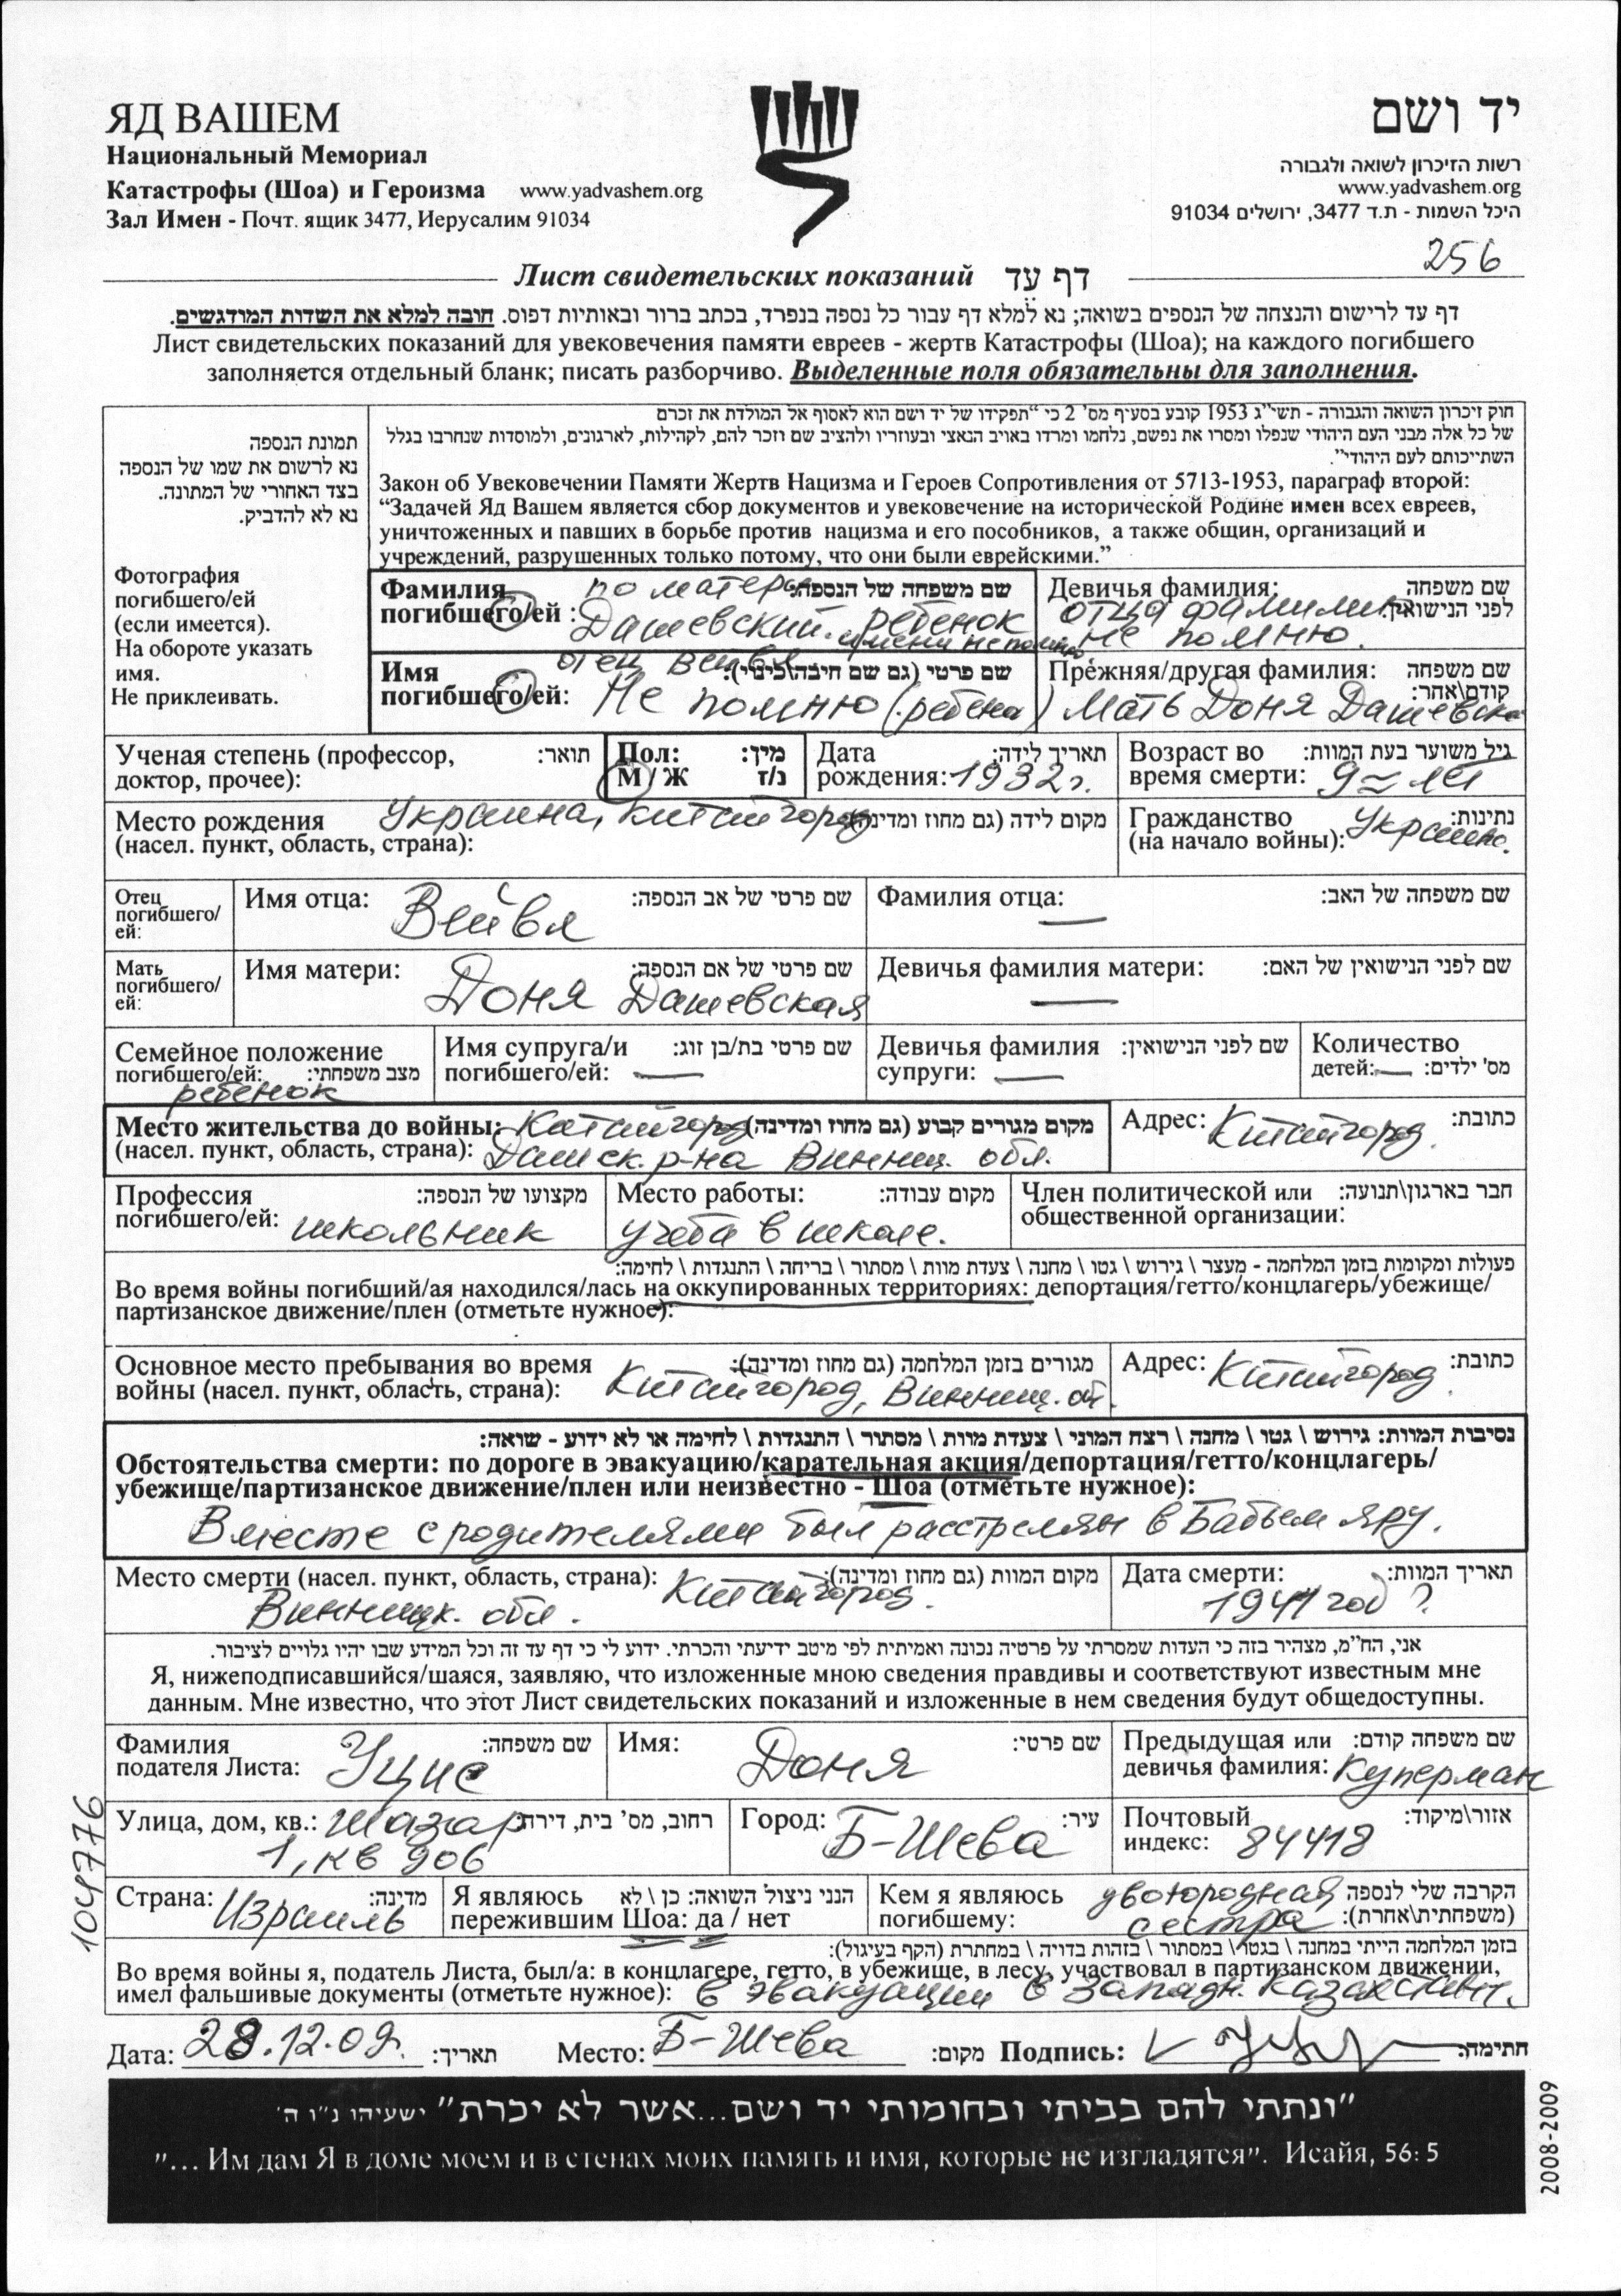 ЯД ВАШЕМ
Национальный Мемориал
Катастрофы (Шоа) и Героизма www.yadvashem.org
Зал Имен - Почт. ящик 3477, Иерусалим 91034
יד ושם
רשות הזיכרון לשואה ולגבורה
www.yadvashem.org
היכל השמות - ת.ד 3477, ירושלים 91034
256
Лист свидетельских показаний דף עד
דף עד לרישום והנצחה של הנספים בשואה; נא למלא דף עבור כל נספה בנפרד, בכתב ברור ובאותיות דפוס. חובה למלא את השדות המודגשים.
Лист свидетельских показаний для увековечения памяти евреев - жертв Катастрофы (Шоа); на каждого погибшего
заполняется отдельный бланк; писать разборчиво. Выделенные поля обязательны для заполнения.
תמונת הנספה
נא לרשום את שמו של הנספה
בצד האחורי של המתונה.
נא לא להדביק.
Фотография
погибшего/ей
(если имеется).
На обороте указать
имя.
Не приклеивать.
חוק זיכרון השואה והגבורה - תשי"ג 1953 קובע בסעיף מס' 2 כי "תפקידו של יד ושם הוא לאסוף אל המולדת את זכרם
של כל אלה מבני העם היהודי שנפלו ומסרו את נפשם, נלחמו ומרדו באויב הנאצי ובעוזריו ולהציב שם וזכר להם, לקהילות, לארגונים, ולמוסדות שנחרבו בגלל
השתייכותם לעם היהודי".
Закон об Увековечении Памяти Жертв Нацизма и Героев Сопротивления от 5713-1953, параграф второй:
“Задачей Яд Вашем является сбор документов и увековечение на исторической Родине имен всех евреев,
уничтоженных и павших в борьбе против нацизма и его пособников, а также общин, организаций и
учреждений, разрушенных только потому, что они были еврейскими.”
Фамилия по матери שם משפחה של הנספה:
погибшего/ей : Дашевский. ребенок
имени не помню
Девичья фамилия: שם משפחה
отца фамилию לפני הנישואין:
не помню.
отец Вейвл
Имя שם פרטי (גם שם חיבה\כינוי):
погибшего/ей: Не помню (ребена)
Прежняя/другая фамилия: שם משפחה
קודם\אחר:
Мать Доня Дашевска
Ученая степень (профессор, תואר:
доктор, прочее):
Пол: מין:
М / Ж נ/ז
Дата תאריך לידה:
рождения: 1932г.
Возраст во גיל משוער בעת המוות:
время смерти: 9 ~ лет
Место рождения Украина, Китайгород מקום לידה (גם מחוז ומדינה):
(насел. пункт, область, страна):
Гражданство נתינות:
(на начало войны): Украина.
Отец
погибшего/
ей:
Имя отца: Вейвл שם פרטי של אב הנספה:
Фамилия отца: — שם משפחה של האב:
Мать
погибшего/
ей:
Имя матери: שם פרטי של אם הנספה:
Доня Дашевская
Девичья фамилия матери: — שם לפני הנישואין של האם:
Семейное положение
погибшего/ей: מצב משפחתי:
ребенок
Имя супруга/и שם פרטי בת/בן זוג:
погибшего/ей: —
Девичья фамилия שם לפני הנישואין:
супруги: —
Количество
детей: — מס' ילדים:
Место жительства до войны: Катайгород מקום מגורים קבוע (גם מחוז ומדינה)
(насел. пункт, область, страна): Дашск. р-на Винниц. обл.
Адрес: Китайгород. כתובת:
Профессия מקצועו של הנספה:
погибшего/ей: школьник
Место работы: מקום עבודה:
учеба в школе.
Член политической или חבר בארגון\תנועה:
общественной организации:
פעולות ומקומות בזמן המלחמה - מעצר \ גירוש \ גטו \ מחנה \ צעדת מוות \ מסתור \ בריחה \ התנגדות \ לחימה:
Во время войны погибший/ая находился/лась на оккупированных территориях: депортация/гетто/концлагерь/убежище/
партизанское движение/плен (отметьте нужное):
Основное место пребывания во время מגורים בזמן המלחמה (גם מחוז ומדינה):
войны (насел. пункт, область, страна): Китайгород, Винниц. об.
Адрес: Китайгород. כתובת:
נסיבות המוות: גירוש \ גטו \ מחנה \ רצח המוני \ צעדת מוות \ מסתור \ התנגדות \ לחימה או לא ידוע - שואה:
Обстоятельства смерти: по дороге в эвакуацию/карательная акция/депортация/гетто/концлагерь/
убежище/партизанское движение/плен или неизвестно - Шоа (отметьте нужное):
Вместе с родителями был расстрелян в Бабьем яру.
Место смерти (насел. пункт, область, страна): Китайгород. מקום המוות (גם מחוז ומדינה):
Винницк. обл.
Дата смерти: תאריך המוות:
1941 год ?
אני, הח"מ, מצהיר בזה כי העדות שמסרתי על פרטיה נכונה ואמיתית לפי מיטב ידיעתי והכרתי. ידוע לי כי דף עד זה וכל המידע שבו יהיו גלויים לציבור.
Я, нижеподписавшийся/шаяся, заявляю, что изложенные мною сведения правдивы и соответствуют известным мне
данным. Мне известно, что этот Лист свидетельских показаний и изложенные в нем сведения будут общедоступны.
Фамилия שם משפחה:
подателя Листа: Уцис
Имя: Доня שם פרטי:
Предыдущая или שם משפחה קודם:
девичья фамилия: Куперман
Улица, дом, кв.: Шазар רחוב, מס' בית, דירה:
1, кв 906
Город: Б-Шева עיר:
Почтовый אזור\מיקוד:
индекс: 84418
Страна: Израиль מדינה:
Я являюсь הנני ניצול השואה: כן \ לא
пережившим Шоа: да / нет
Кем я являюсь двоюродная הקרבה שלי לנספה
погибшему: сестра (משפחתית\אחרת):
בזמן המלחמה הייתי במחנה \ בגטו \ במסתור \ בזהות בדויה \ במחתרת (הקף בעיגול):
Во время войны я, податель Листа, был/а: в концлагере, гетто, в убежище, в лесу, участвовал в партизанском движении,
имел фальшивые документы (отметьте нужное): в эвакуации в Западн. Казахстан.
Дата: 28.12.09г. תאריך: Место: Б-Шева מקום: Подпись: חתימה:
"ונתתי להם בביתי ובחומותי יד ושם...אשר לא יכרת" ישעיהו נ"ו ה'
"... Им дам Я в доме моем и в стенах моих память и имя, которые не изгладятся". Исайя, 56: 5
104776
2008-2009